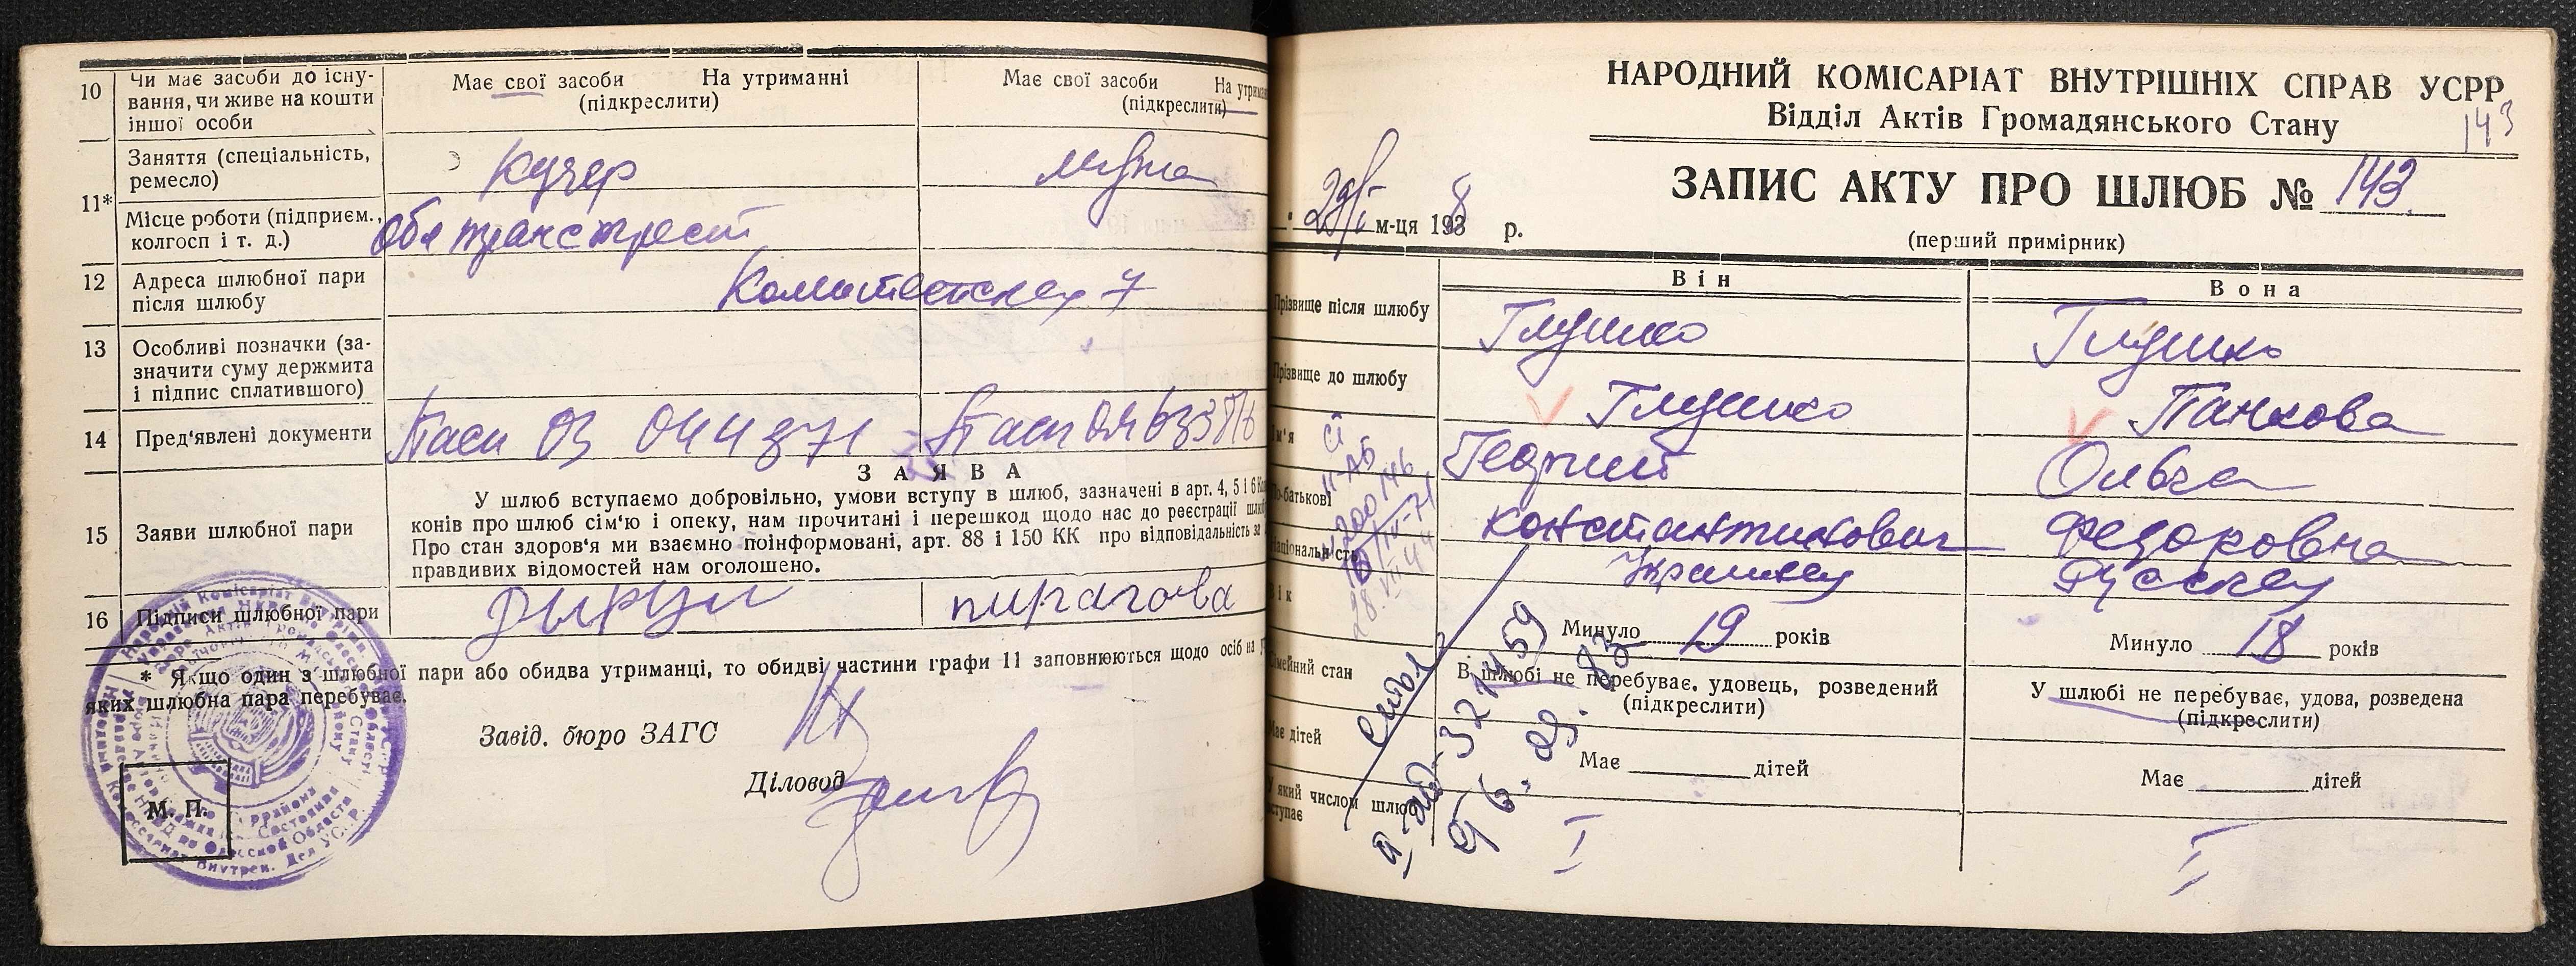 10 Чи має засоби до існу-
вання, чи живе на кошти
іншої особи
Має свої засоби На утриманні
(підкреслити)
Має свої засоби
(підкреслити)
11* Заняття (спеціальність,
ремесло)
Кучер
мужа
Місце роботи (підприєм.,
колгосп і т. д.)
Облтранстрест
12 Адреса шлюбної пари
після шлюбу
7
13 Особливі позначки (за-
значити суму держмита
і підпис сплатившого)
14 Пред'явлені документи
Пасп ОЗ 044371
Пасп
ЗАЯВА
15 Заяви шлюбної пари
У шлюб вступаємо добровільно, умови вступу в шлюб, зазначені в арт. 4, 5 і 6
конів про шлюб сім'ю і опеку, нам прочитані і перешкод щодо нас до реєстрації
Про стан здоров'я ми взаємно поінформовані, арт. 88 і 150 КК про відповідальність за
правдивих відомостей нам оголошено.
16 Підписи шлюбної пари
пирагова
* Якщо один з шлюбної пари або обидва утриманці, то обидві частини графи 11 заповнюються щодо осіб на
яких шлюбна пара перебуває.
Завід. бюро ЗАГС
Діловод
М. П.
НАРОДНИЙ КОМІСАРІАТ ВНУТРІШНІХ СПРАВ УСРР
Відділ Актів Громадянського Стану
143
ЗАПИС АКТУ ПРО ШЛЮБ № 143
29/I м-ця 1938 р.
(перший примірник)
Він
Вона
Прізвище після шлюбу
Глушко
Глушко
Прізвище до шлюбу
Глушко
Панкова
Ім'я
Георгий
Ольга
По-батькові
Константинович
Федоровна
Національність
Украинец
Русская
Вік
Минуло 19 років
Минуло 18 років
Сімейний стан
В шлюбі не перебуває, удовець, розведений
(підкреслити)
У шлюбі не перебуває, удова, розведена
(підкреслити)
Має дітей
Має дітей
Має дітей
У який числом шлюб
вступає
I
I
II-АБ
200146
II-аб-321459